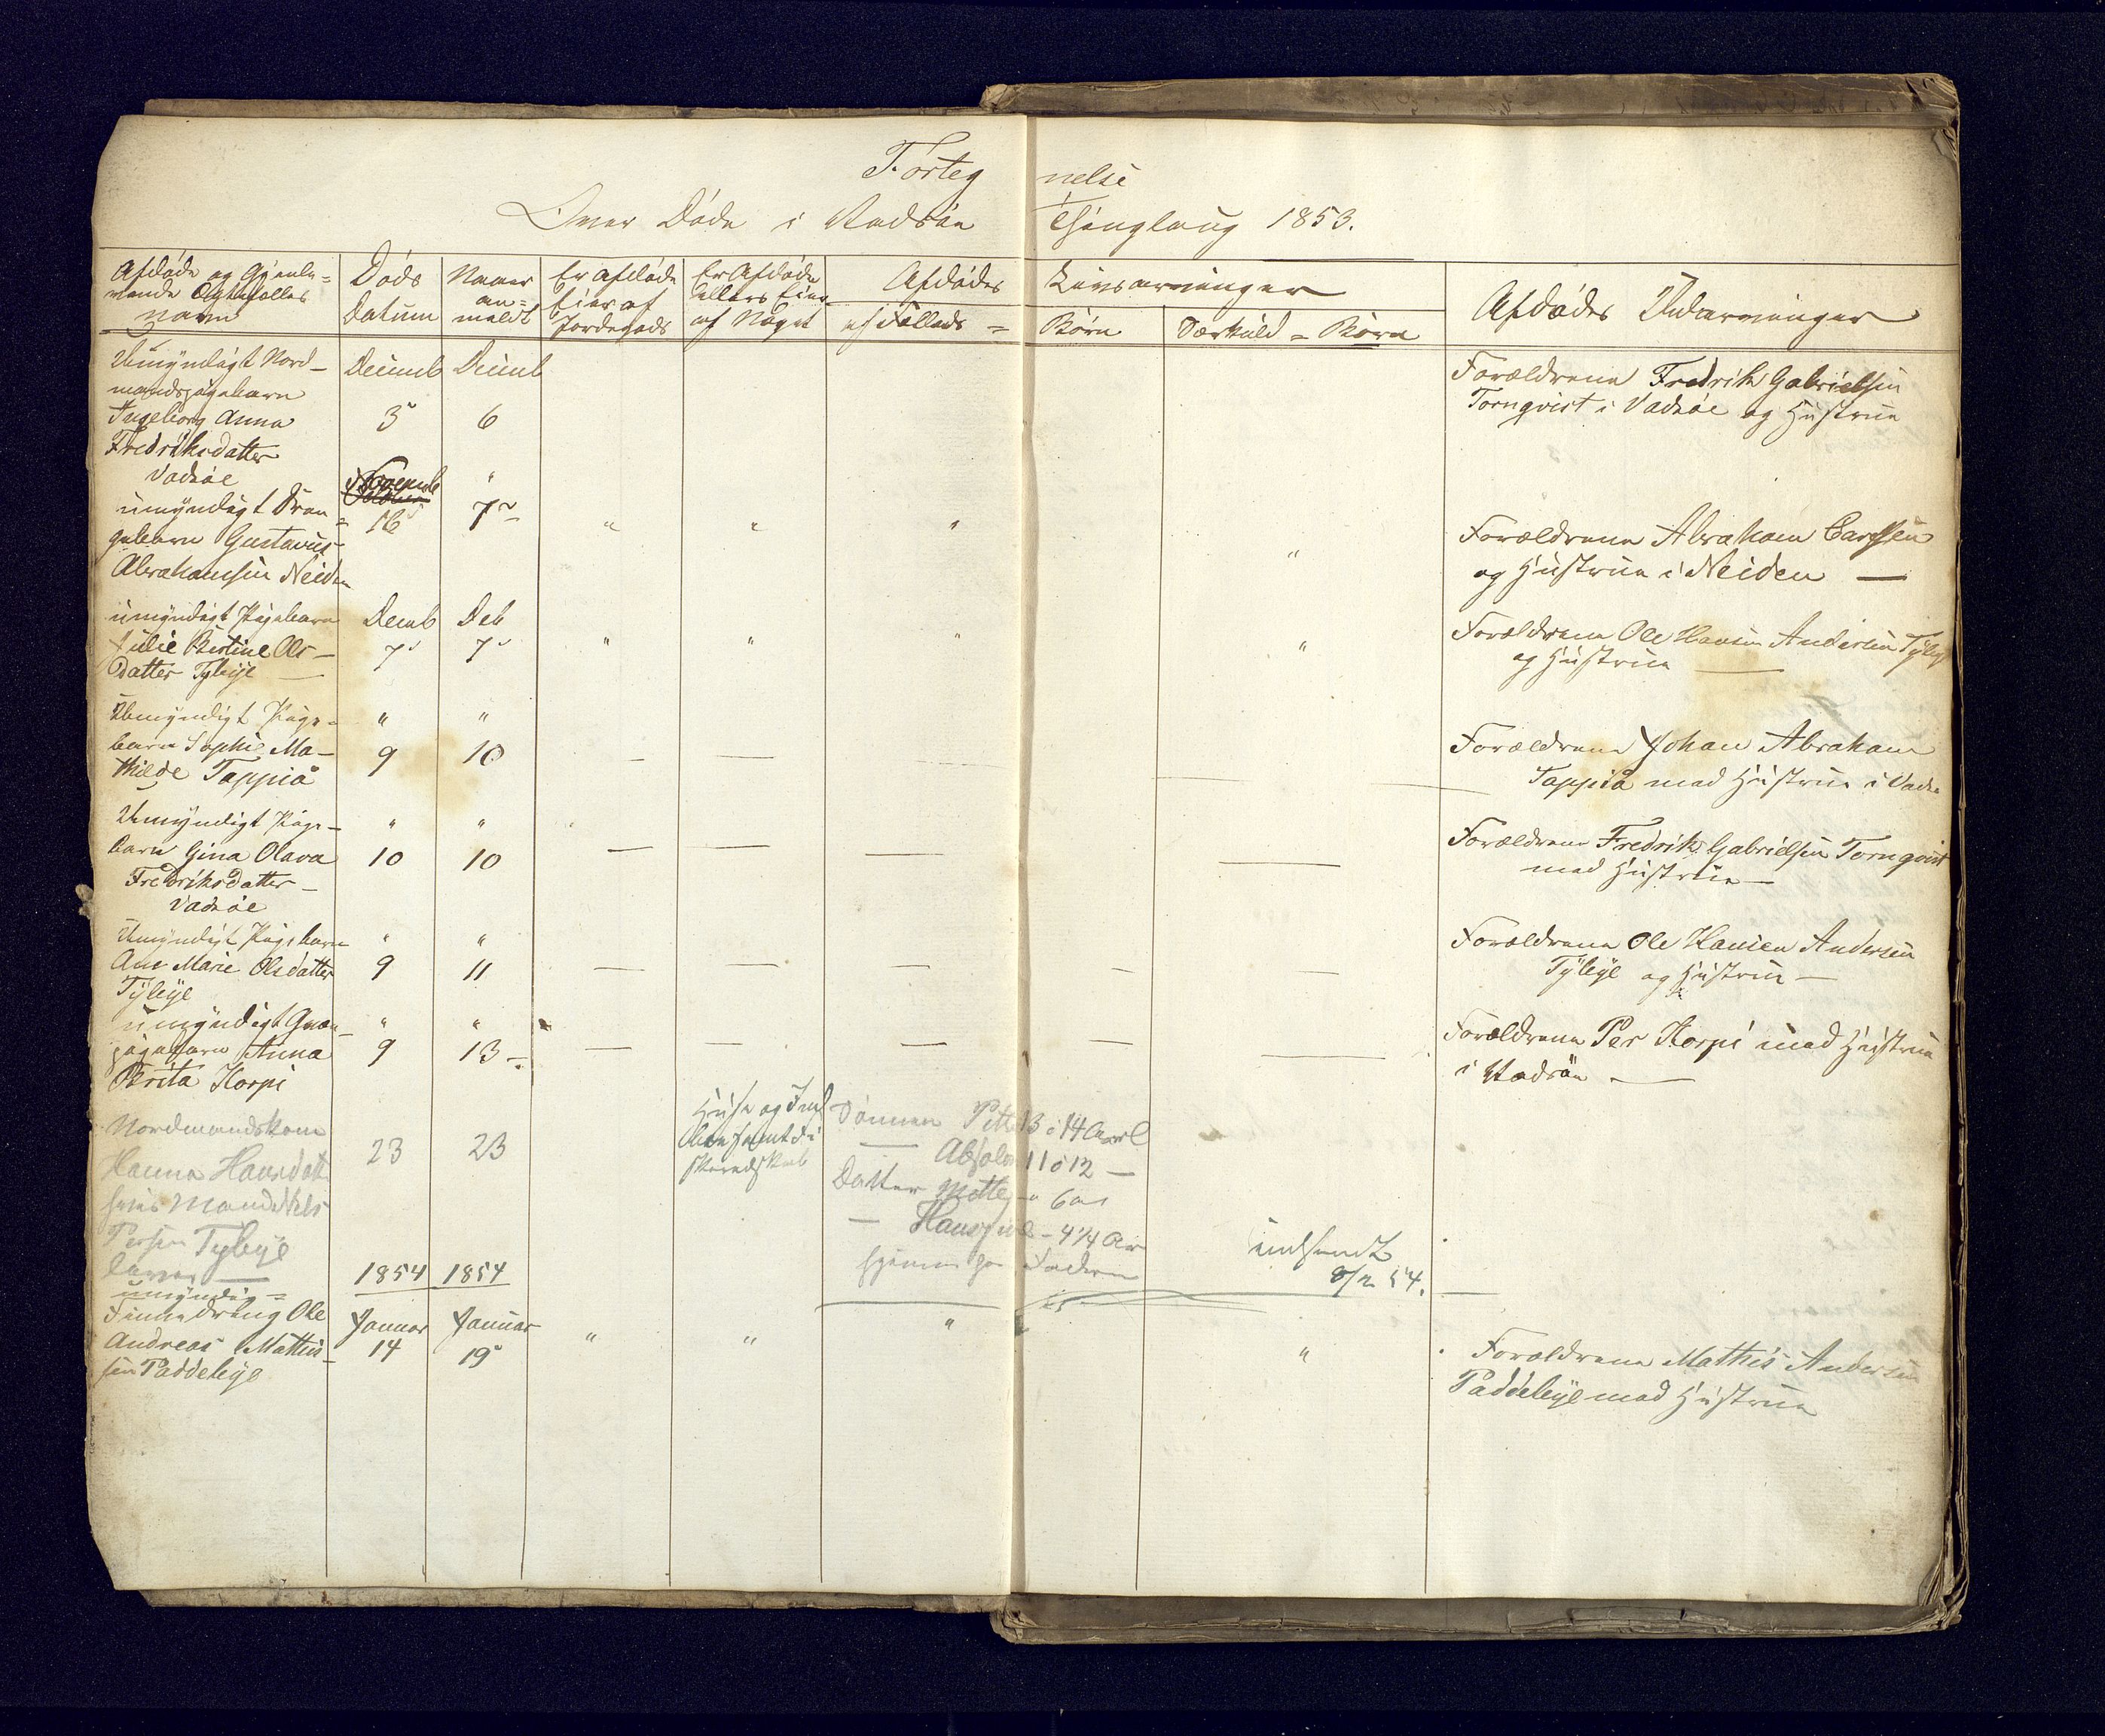 Førteg nelse
Over Døde i Vadsøe Thinglaug 1853.
Afdøde og Gjenle=
vende Ægtefælles
Navn
Døds
Datum
Naaer
an=
meldt
Er Afdøde
Eier af
Jordegods
Er Afdøde
ellers Eier
af Noget
Afdødes Livsarvinger
af Fælleds = Børn
Særkuld = Børn
Afdødes Udarvinger
Umyndigt Nord-
mandspigebarn
Ingeborg Anna
Fredriksdatter
Vadsøe
Decemb Decemb
3 6
Forældrene Fredrik Gabrielsen
Tornqvist i Vadsøe og Hustrue
umyndigt Dren=
gebarn Gustavus
Abrahamsen Neiden
Novemb "
16 7
" " " "
Forældrene Abraham
og Hustrue i Neiden —
umyndigt Pigebarn
Julie Kistine Ols-
Datter Tyleye —
Decmb Deb
7 7
" " " "
Forældrene Ole Hansen Andersen Tyleye
og Hustrue —
Umyndigt Pige-
barn Sophie Ma-
thilde Tappiå
" "
9 10 — — — —
Forældrene Johan Abraham
Tappiå med Hustrue i Vadsø
Umyndigt Pige-
barn Gina Olava
Fredriksdatter-
Vadsøe
" "
10 10 — — — —
Forældrene Fredrik Gabrielsen Tornqvist
med Hustrue —
Umyndigt Pigebarn
Ane Marie Olsdatter
Tyleye
" "
9 11 — — — — —
Forældrene Ole Hansen Andersen
Tyleye og Hustrue —
umyndigt Qvæn-
pigebarn Anna
Brita Korpi
" "
9 13 — — — — —
Forældrene Per Korpi med Hustrue
i Vadsøe —
Nordmandskone
Hanna Hansdatt
hvis Mand Nels
Persen Tyleye
lever —
23 23
Huse og Ind
boe samt
Sønnen Pet 13 á 14 Aar
— Absalon 11 á 12 —
Datter Mette - 6 Aar
— Hans - 4 1/4 Aar
Faderen
indsendt
8/2 54.
1854 1854
umyndig=
Finnedreng Ole
Andreas Mathis-
sen Paddeleye
Januar Januar
14 19
" " " "
Forældrene Mathis Andersen
Paddeleye med Hustrue